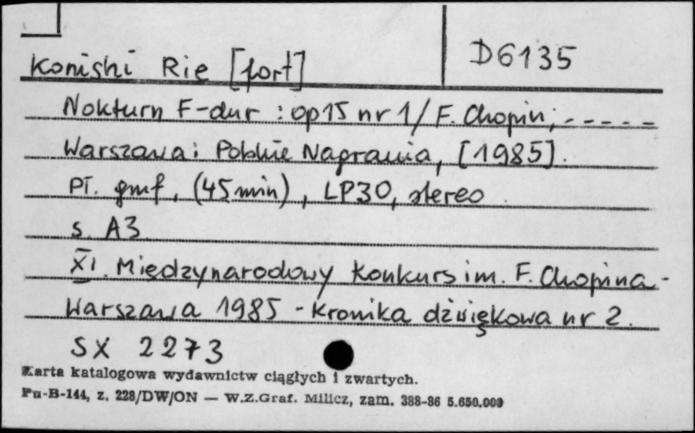 Konishi Rie [fort] D6135
Nokturn F-dur : op15 nr 1 / F. Chopin; - - - - -
Warszawa : Polskie Nagrania, [1985].
Pł. gmf, (45 min), LP30, stereo
s. A3
XI. Międzynarodowy Konkurs im. F. Chopina -
Warszawa 1985 - Kronika dźwiękowa nr 2.
SX 2273
Karta katalogowa wydawnictw ciągłych i zwartych.
Pu-B-144, z. 228/DW/ON — W.Z.Graf. Milicz, zam. 388-86 5.650.000